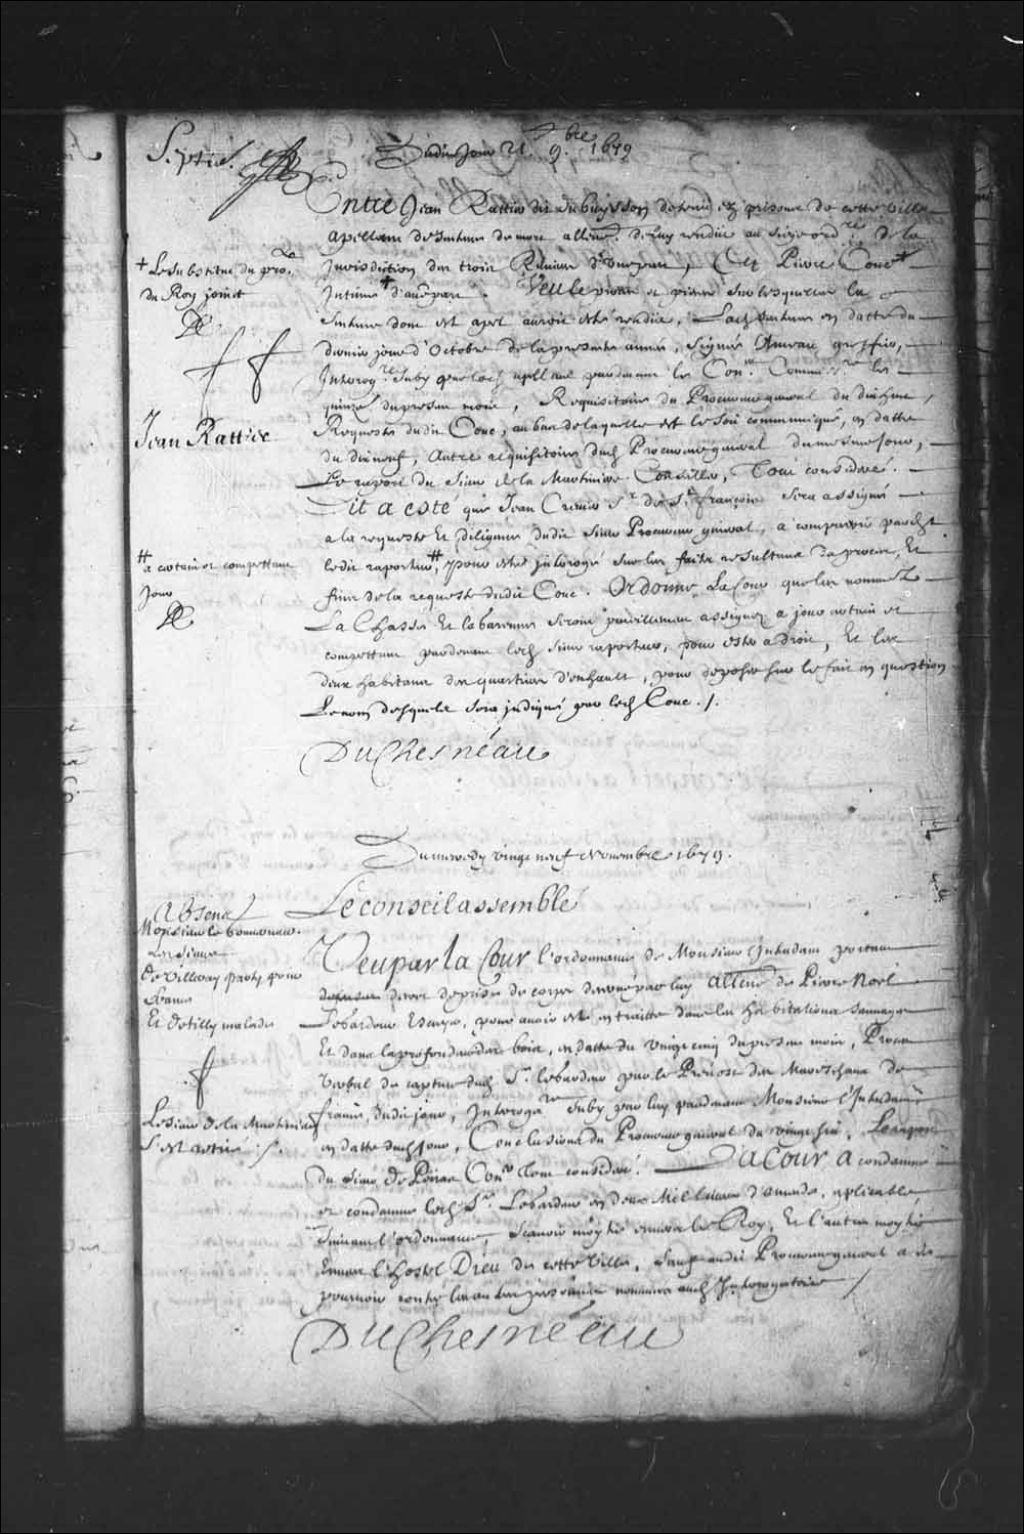 Septies.
Dudit Jour 21. 9.bre 1679
Entre Jean Rattier dit dubuysson detenu ez prisons de cette ville
apellant de sentence de mort allencontre de luy rendue au siege ord.re de la
Jurisdiction des trois Rivieres d'une part, Et Pierre Couc +
Intimé + d'autre part. Veu le procez et pieces sur lesquelles la
sentence dont est apel auroit esté rendüe, Lad. sentence en datte du
dernier jour d'Octobre de la presente année, signée Ameau greffier,
Interog.re suby par led. apellant pardevant les Con.rs Commiss.res le
quinze du present mois, Requisitoire du Procureur general du dixhuit,
Requeste dudit Couc, au bas de laquelle est le soit communiqué, en datte
du dixneuf, autre requisitoire dud. Procureur general du mesme jour,
Le raport du Sieur de la Martiniere Conseiller, Tout consideré.
Dit a esté que Jean Crevier s.r de S.t françois sera assigné
a la requeste et diligence dudit sieur Procureur general, a comparoir pardevant
ledit raporteur, # pour estre interogé sur les faits resultans du procez, Et
fins de la requeste dudit Couc. Ordonne La Cour que les nommez
La Chasse Et la barenne seront pareillement assignez a jour certain et
compettant pardevant led. sieur raporteur, pour ester a droit, Et les
deux habitans des quartiers d'enhault, pour deposer sur le fait en question
Le nom desquels sera indiqué par led. Couc ./.
DuChesneau
+ Le substitut du pro.r
du Roy joint
Jean Rattier
# a certain et compettant
jour
Du mercredy vingt neuf Novembre 1679.
Le conseil assemblé
Absens
Monsieur le Gouverneur.
Les sieurs
De Villeray party pour
france
Et de Tilly malade
Veu par la Cour l'ordonnance de Monsieur l'Intendant portant
decret de prise de corps decerné par luy allencontre de Pierre Noel
Lebardeur Escuyer, pour avoir esté en traitte dans les habitations sauvages
Et dans la profondeur des bois, en datte du vingt cinq du present mois, Procez
verbal de capture dud. S.r lebardeur par le Prevost des Mareschaux de
france, dudit jour, Interoga.re suby par luy pardevant Monsieur l'Intendant
en datte dud. jour, Conclusions du Procureur general du vingt six, Le raport
du sieur de Peiras Con.er Tout consideré. La Cour a condamné
et condamne led. S.r Lebardeur en deux Mil livres d'amende, aplicable
suivant l'ordonnance Scavoir moytié envers le Roy, Et l'autre moytié
Envers l'hostel Dieu de cette ville, sauf audit Procureur general a se
pourvoir contre les autres personnes nommées aud. Interogatoire /
DuChesneau
Le sieur de la Martiniere
S'est retiré ./.